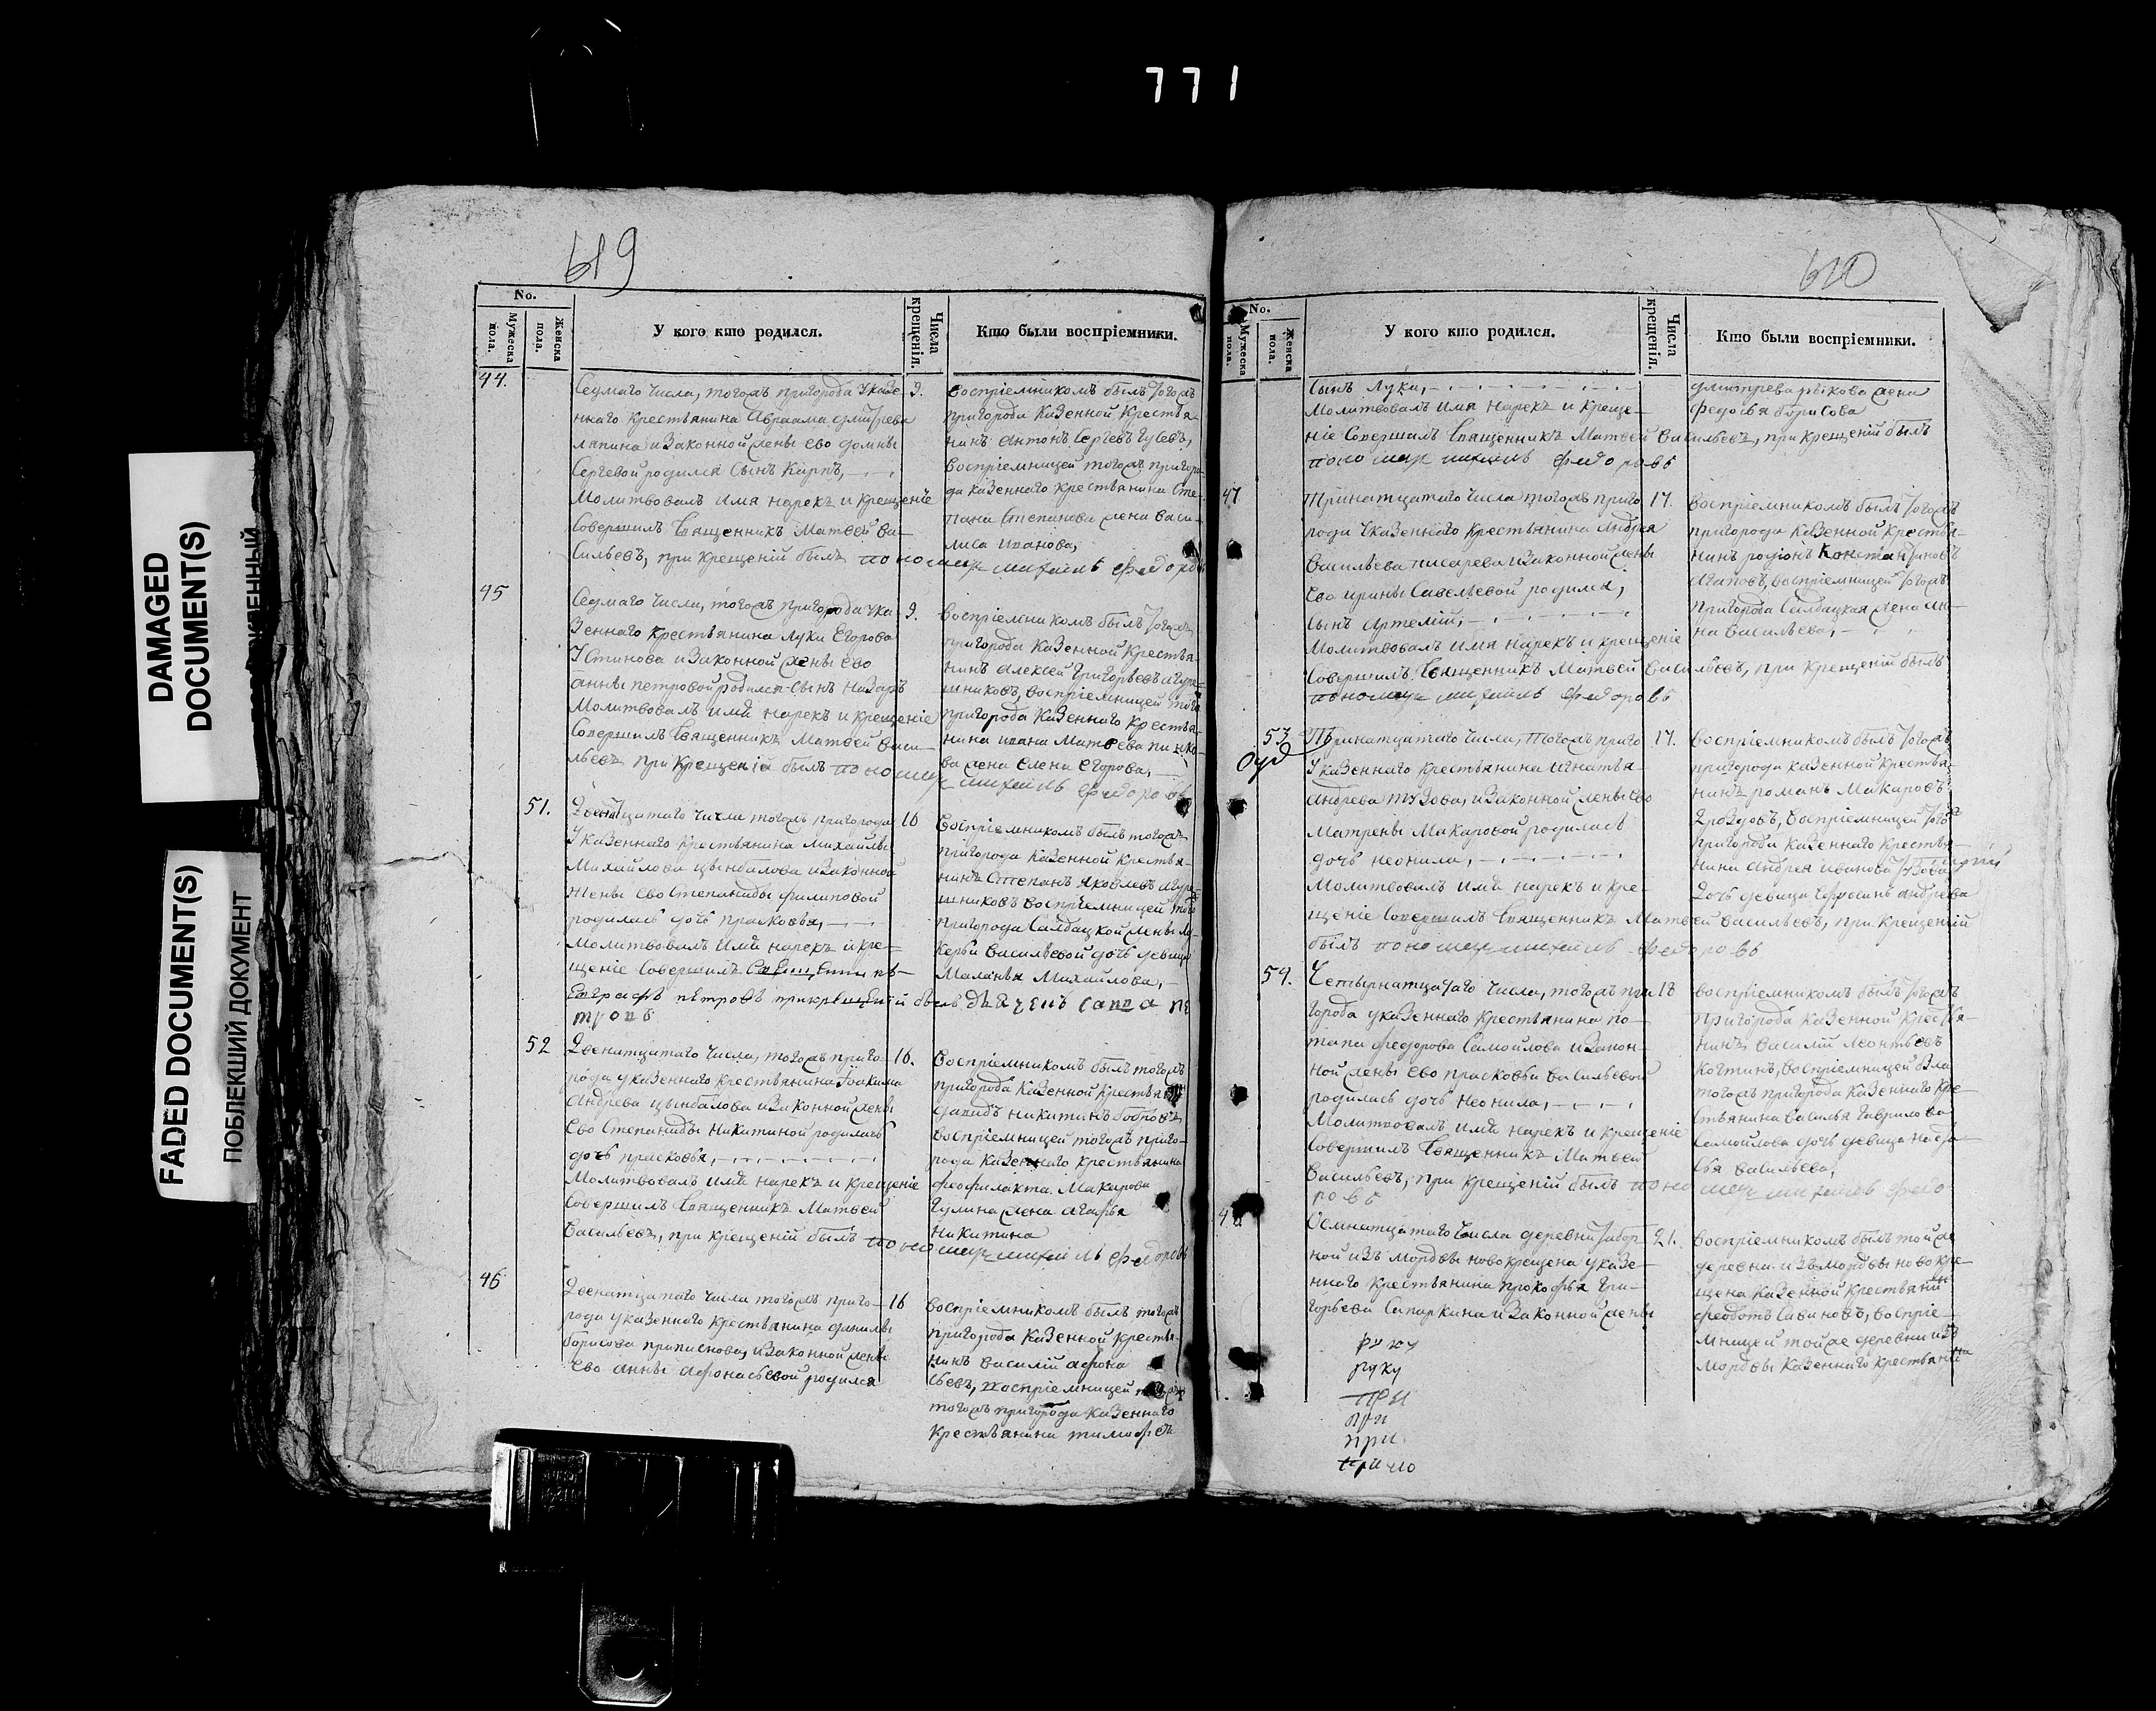 771
DAMAGED
DOCUMENT(S)
FADED DOCUMENT(S)
ПОБЛЕКШИЙ ДОКУМЕНТ
619
No.
Мужеска пола.
Женска пола.
У кого кто родился.
Числа крещенія.
Кто были воспріемники.
44.
Седмаго числа, тогожъ пригорода у казе
ннаго крестьянина Авраама Дмитрева
ляпина и законной жены ево домны
Сергевой родился сынъ Карпъ,
Молитвовалъ имя нарекъ и крещеніе
Совершилъ Священникъ Матвей Ва-
сильевъ, при крещеній былъ пономарь михаилъ федоровъ
9.
воспріемникомъ былъ тогожъ
пригорода казенной крестья-
нинъ антонъ Сергевъ гусевъ,
воспріемницей тогожъ пригоро-
да казеннаго крестьянина Сте-
пана Степанова жена васи-
лиса иванова,
45
Седмаго числа, тогожъ пригорода у ка
зеннаго крестьянина луки Егорова
Устинова и законной жены ево
анны петровой родился сынъ назаръ
Молитвовалъ имя нарекъ и крещеніе
Совершилъ Священникъ Матвей васи-
льевъ при крещеній былъ пономарь михаилъ федоровъ
9.
воспріемникомъ былъ тогожъ
пригорода казенной крестья-
нинъ алексей григорьевъ
шниковъ, воспріемницей того
пригорода казеннаго крестья-
нина ивана Матвева
ва жена Елена Егорова,
51.
Двенатцатаго числа тогожъ пригорода
У казеннаго крестьянина михайлы
Михайлова цынбалова и законной
жены ево Степаниды филиповой
родилась дочь прасковья,
Молитвовалъ имя нарекъ и кре-
щеніе Совершилъ Священникъ
Евграфъ петровъ при крещеніи былъ дьячекъ
тровъ
16
воспріемникомъ былъ тогожъ
пригорода казенной крестья-
нинъ Степанъ яковлевъ
шниковъ воспріемницей того
пригорода Салдацкой жены лу-
керьи васильевой дочь девица
Маланья Михайлова,
52
Двенатцатаго числа, тогожъ приго-
рода у казеннаго крестьянина Іоакима
Андрева цынбалова и законной жены
ево Степаниды никитиной родилась
дочь прасковья,
Молитвовалъ имя нарекъ и крещеніе
Совершилъ Священникъ Матвей
Васильевъ, при крещеній былъ пономарь михаилъ федоровъ
16.
воспріемникомъ былъ тогожъ
пригорода казенной крестьянинъ
давидъ никитинъ бобровъ,
воспріемницей тогожъ приго-
рода казеннаго крестьянина
феофилакта Макарова
гулина жена агафья
никитина
46
Двенатцатаго числа тогожъ приго-
рода у казеннаго крестьянина данилы
борисова приписнова, и законной жены
ево анны афонасьевой родился
16
воспріемникомъ былъ тогожъ
пригорода казенной крестья-
нинъ василій афона
сьевъ, воспріемницей
тогожъ пригорода казеннаго
крестьянина тимофея
620
No.
Мужеска пола.
Женска пола.
У кого кто родился.
Числа крещенія.
Кто были воспріемники.
сынъ лука,
Молитвовалъ имя нарекъ и креще-
ніе Совершилъ Священникъ Матвей васильевъ, при крещеній былъ
пономарь михаилъ федоровъ
дмитрева жена
федосья борисова
47
Тринатцатаго числа тогожъ приго
рода у казеннаго крестьянина Андрея
Васильева писарева и законной жены
ево ирины Савельевой родился,
сынъ артемій,
Молитвовалъ имя нарекъ и крещеніе
Совершилъ Священникъ Матвей васильевъ, при крещеній былъ
пономарь михаилъ федоровъ
17.
воспріемникомъ былъ тогожъ
пригорода казенной крестья-
нинъ родіонъ константиновъ
агаповъ, воспріемницей тогожъ
пригорода Салдацкая жена ан-
на васильева,
53
Тринатцатаго числа, тогожъ приго
У казеннаго крестьянина игнатья
андрева тузова, и законной жены ево
Матрены Макаровой родилась
дочь неонила,
Молитвовалъ имя нарекъ и кре-
щеніе Совершилъ Священникъ Матвей васильевъ, при крещеній
былъ пономарь михаилъ федоровъ
17.
воспріемникомъ былъ тогожъ
пригорода казенной крестья-
нинъ романъ Макаровъ
Дроздовъ, воспріемницей того
пригорода казеннаго крестья-
нина андрея иванова тузова
дочь девица андрева
54.
Четырнатцатаго числа, тогожъ при
города у казеннаго крестьянина по-
тапа федорова Самойлова и закон-
ной жены ево прасковьи васильевой
родилась дочь неонила,
Молитвовалъ имя нарекъ и крещеніе
Совершилъ Священникъ Матвей
Васильевъ, при крещеній былъ пономарь михаилъ федо
ровъ
18
воспріемникомъ былъ тогожъ
пригорода казенной крестья-
нинъ василій леонтьевъ
когтинъ, воспріемницей была
тогожъ пригорода казеннаго кре-
стьянина василья гаврилова
Самойлова дочь девица наста-
сья васильева,
Осмнатцатаго числа деревни забор
ной изъ мордвы новокрещена у казе-
ннаго крестьянина прокофья гри-
горьева Сапаркина и законной жены
21.
воспріемникомъ былъ той же
деревни изъ мордвы новокре-
щена казенной крестьянинъ
федотъ Савиновъ, воспріе-
мницей той же деревни изъ
мордвы казеннаго крестьянина
руку
руку
при
при
при